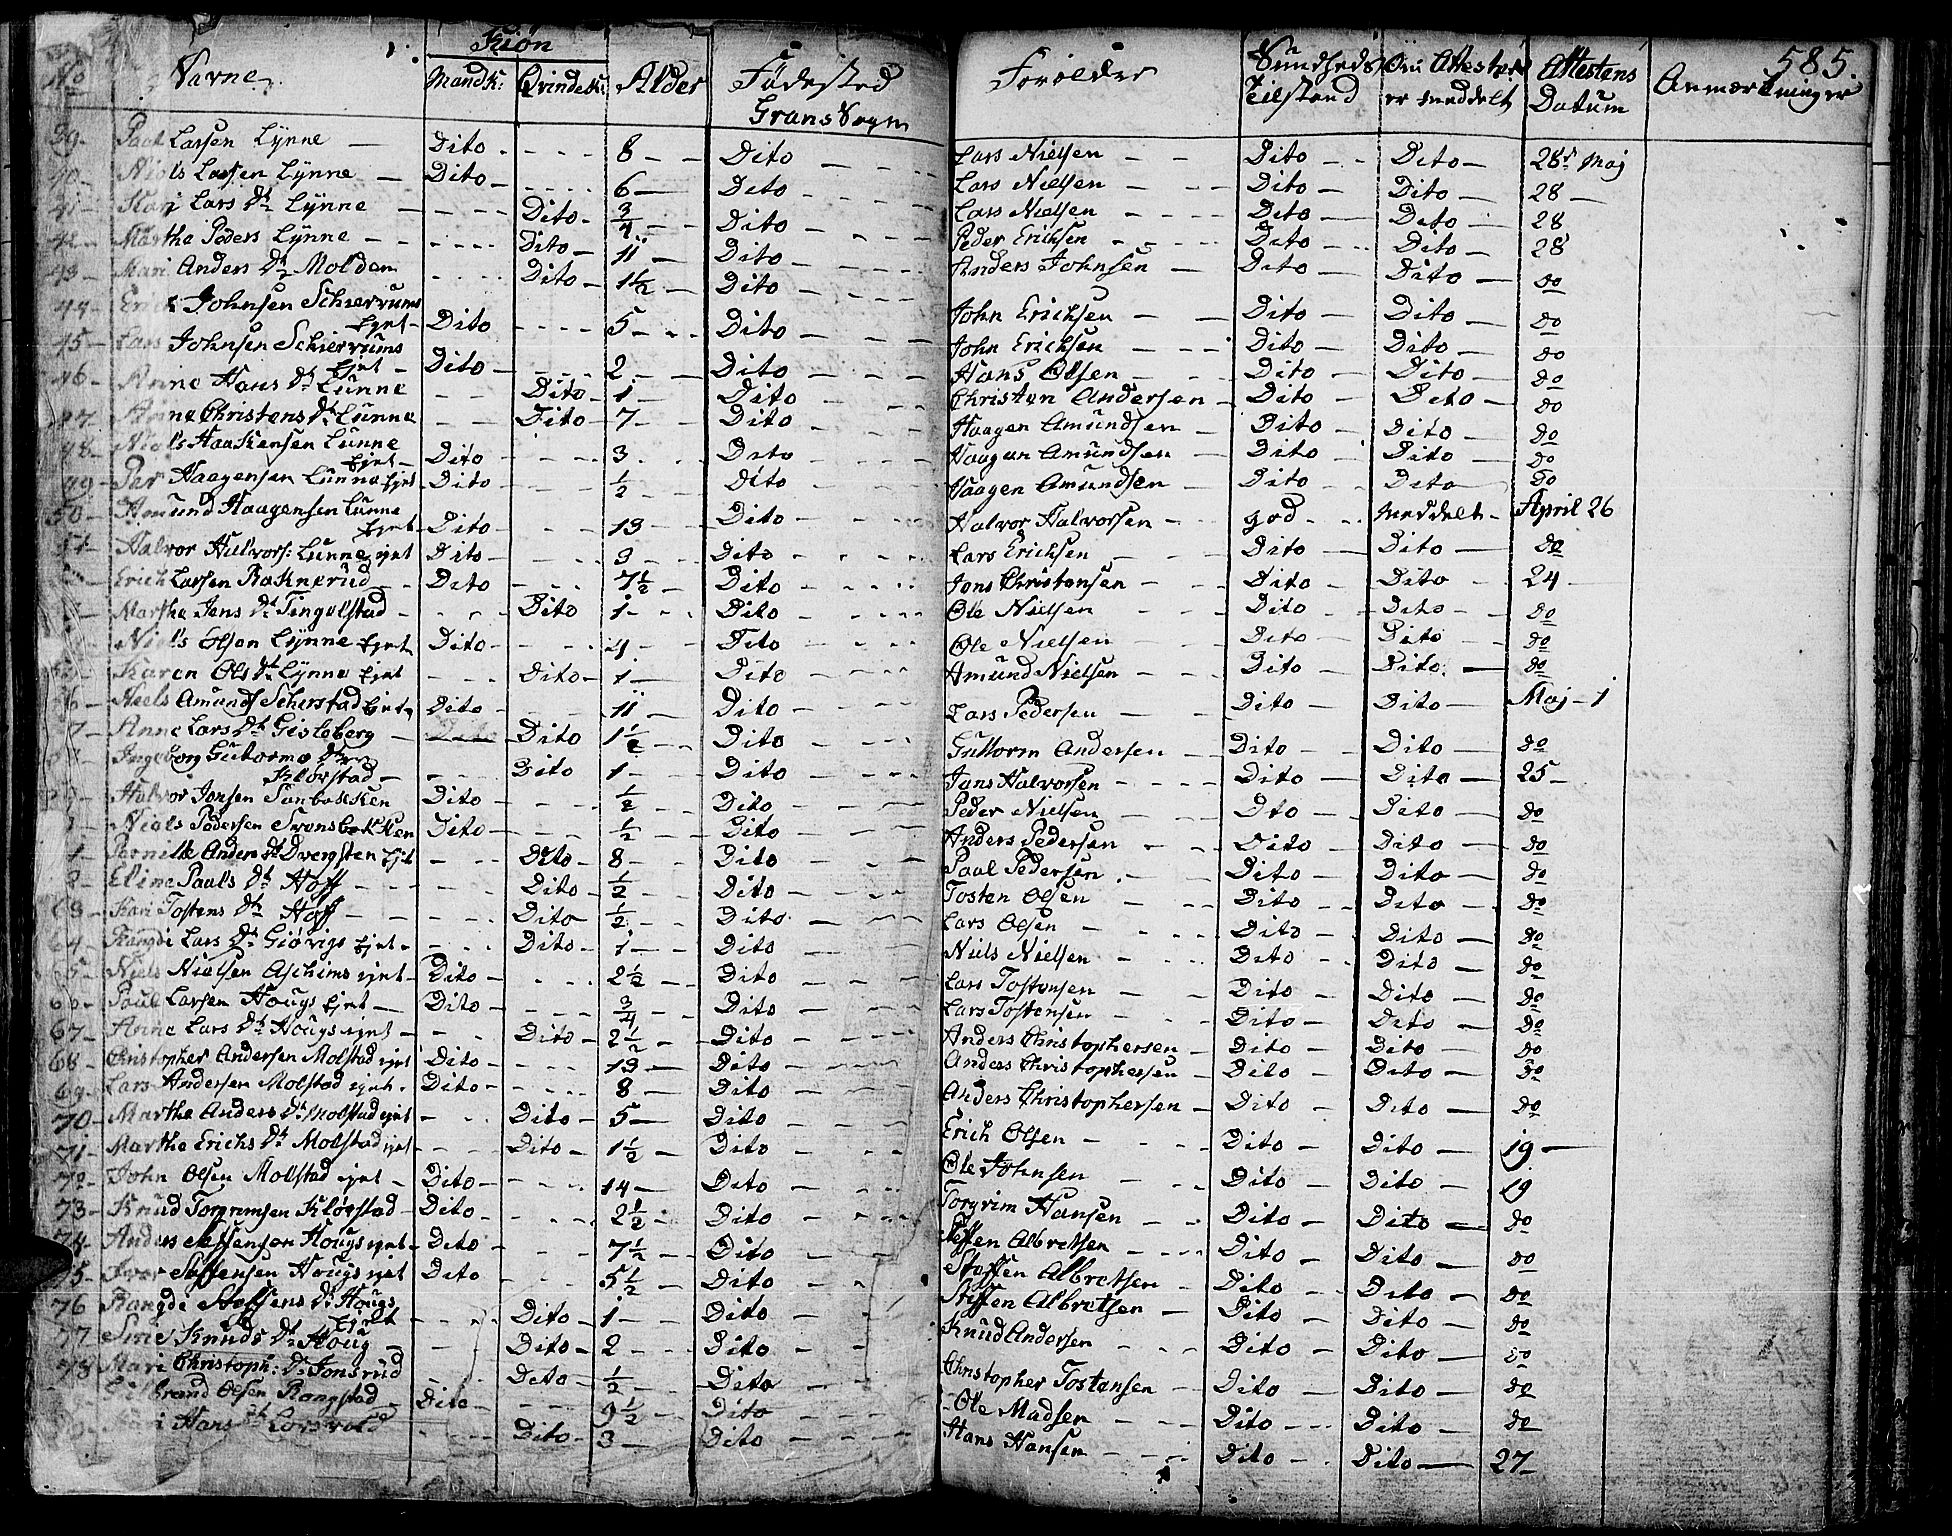 585.
No Navne Kiøn Alder Fødested Forælder Sundheds Tilstand Om Attester er meddelt Attestens Datum Anmærkninger
Mandk: Qvindek: Grans Sogn
39 Paal Larsen Lynne Dito 8 Dito Lars Nielsen Dito Dito 28de Maj
40 Niels Larsen Lynne Dito 6 Dito Lars Nielsen Dito Dito 28
41 Kari Lars Dt Lynne Dito 3/4 Dito Lars Nielsen Dito Dito 28
42 Marthe Peders Lynne Dito 11 Dito Peder Erichsen Dito Dito 28
43 Mari Anders Dt Molden Dito 1 1/2 Dito Anders Johnsen Dito Dito do
44 Erich Johnsen Schierrums
Ejet Dito 5 Dito John Erichsen Dito Dito do
45 Lars Johnsen Schierrums
Ejet Dito 2 Dito John Erichsen Dito Dito do
46 Anne Hans Dt Lunne Dito 1 Dito Hans Olsen Dito Dito do
47 Anne Christens Dt Lunne Dito 7 Dito Christen Andersen Dito Dito do
48 Niels Haakensen Lunne
Ejet Dito 3 Dito Haagen Amundsen Dito Dito do
49 Per Haagensen Lunne Ejet Dito 1/2 Dito Haagen Amundsen Dito Dito do
50 Amund Haagensen Lunne
Ejet Dito 13 Dito Haagen Amundsen Dito Dito do
51 Halvor Halvors: Lunne ejet Dito 3 Dito Halvor Halvorsen god meddelt April 26
Erich Larsen Raknerud Dito 7 1/2 Dito Lars Erichsen Dito Dito do
Marthe Jens Dt Tingelstad Dito 1 Dito Jens Christensen Dito Dito 24
Niels Olsen Lynne Ejet Dito 4 Dito Ole Nielsen Dito Dito do
Karen Ols Dt Lynne Ejet Dito 1 Dito Ole Nielsen Dito Dito do
56 Niels Amunds Scherstad Ejet Dito 11 Dito Amund Nielsen Dito Dito do
7 Anne Lars Dt Gisleberg Dito 1 1/2 Dito Lars Pedersen Dito Dito Maj 1
Ingeborg Gutorms Dt
Klørstad Dito 1 Dito Guttorm Andersen Dito Dito do
Halvor Jensen Sønbakken Dito 1/2 Dito Jens Halvorsen Dito Dito 25
Niels Pedersen Svensbakken Dito 1/2 Dito Peder Nielsen Dito Dito do
1 Pernille Anders Dt Dvergsten Ejet Dito 8 Dito Anders Pedersen Dito Dito do
2 Eline Paals Dt Hoff Dito 1/2 Dito Paal Pedersen Dito Dito do
63 Kari Tostens Dt Hoff Dito 1/2 Dito Tosten Olsen Dito Dito do
64 Rangde Lars Dt Giøvigs Ejet Dito 1 Dito Lars Olsen Dito Dito do
65 Niels Nielsen Aschims ejet Dito 2 1/2 Dito Niels Nielsen Dito Dito do
66 Paul Larsen Hougs Ejet Dito 3/4 Dito Lars Tostensen Dito Dito do
67 Anne Lars Dt Hougs ejet Dito 2 1/2 Dito Lars Tostensen Dito Dito do
68 Christopher Andersen Molstad ejet Dito 13 Dito Anders Christophersen Dito Dito do
69 Lars Andersen Molstad ejet Dito 8 Dito Anders Christophersen Dito Dito do
70 Marthe Anders Dt Molstad ejet Dito 5 Dito Anders Christophersen Dito Dito do
71 Marthe Erichs Dt Molstad ejet Dito 1 1/2 Dito Erich Olsen Dito Dito 19
72 John Olsen Molstad ejet Dito 14 Dito Ole Johnsen Dito Dito 19
73 Knud Torgrimsen Klørstad Dito 2 1/2 Dito Torgrim Hansen Dito Dito do
74 Anders Steffensen Hougs ejet Dito 7 1/2 Dito Steffen Albretsen Dito Dito do
75 Iver Steffensen Hougs ejet Dito 5 1/2 Dito Steffen Albretsen Dito Dito do
76 Rangde Steffens Dt Hougs
Ejet Dito 1 Dito Steffen Albretsen Dito Dito do
77 Sirie Knuds Dt Houg Dito 2 Dito Knud Andersen Dito Dito do
78 Mari Christoph: Dt Jonsrud Dito 1/2 Dito Christopher Tostensen Dito Dito do
Gulbrand Olsen Rangstad Dito 9 1/2 Dito Ole Madsen Dito Dito do
Hans Dt Dito 3 Dito Hans Hansen Dito Dito 27